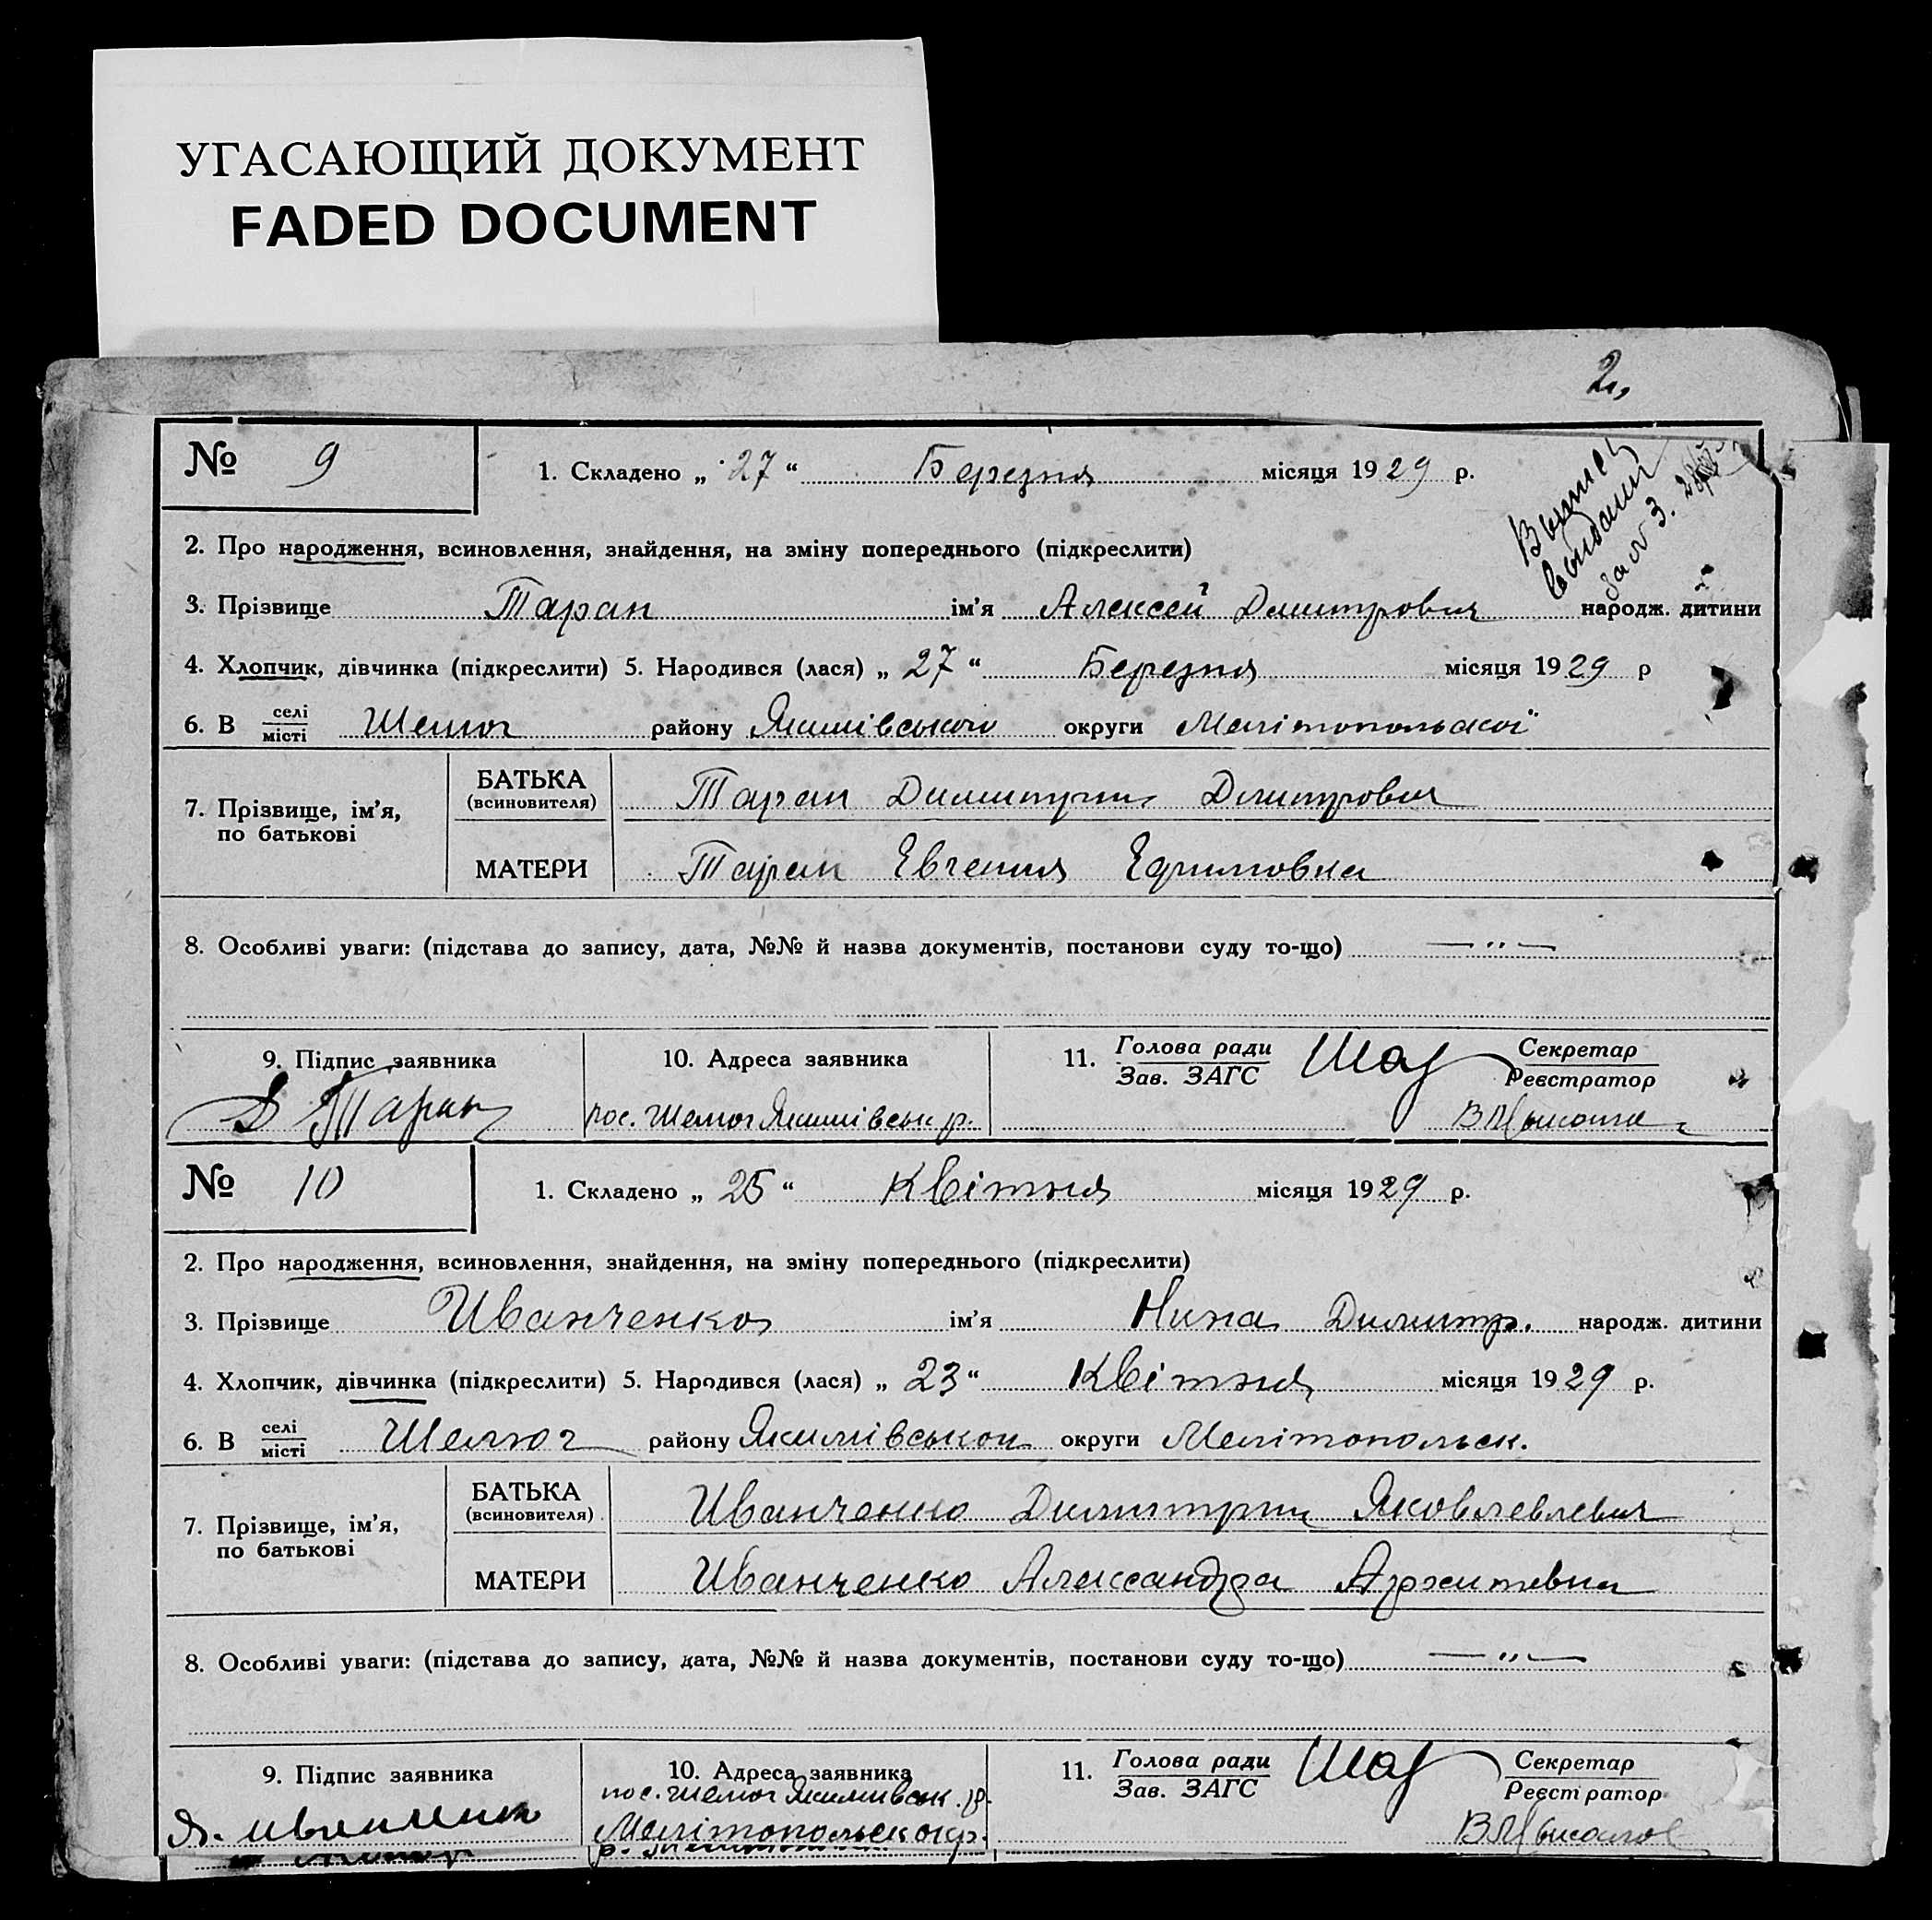 УГАСАЮЩИЙ ДОКУМЕНТ
FADED DOCUMENT
2,
№ 9 1. Складено „ 27 “ Березня місяця 1929 р.
2. Про народження, всиновлення, знайдення, на зміну попереднього (підкреслити)
3. Прізвище Таран ім’я Алексей Димитрович народж. дитини
4. Хлопчик, дівчинка (підкреслити) 5. Народився (лася) „ 27 “ Березня місяця 1929 р
6. В селі місті Шелюг району Якимівського округи Мелітопольської
7. Прізвище, ім’я, по батькові
БАТЬКА (всиновителя) Таран Димитрий Димитрович
МАТЕРИ Таран Евгения Ефимовна
8. Особливі уваги: (підстава до запису, дата, №№ й назва документів, постанови суду то-що) — „ —
9. Підпис заявника 10. Адреса заявника 11. Голова ради Зав. ЗАГС Секретар Реєстратор
Д Таран пос. Шелюг Якимівськ р.
№ 10 1. Складено „ 25 “ Квітня місяця 1929 р.
2. Про народження, всиновлення, знайдення, на зміну попереднього (підкреслити)
3. Прізвище Иванченко ім’я Нина Димитр. народж. дитини
4. Хлопчик, дівчинка (підкреслити) 5. Народився (лася) „ 23 “ Квітня місяця 1929 р.
6. В селі місті Шелюг району округи Мелітопольск.
7. Прізвище, ім’я, по батькові
БАТЬКА (всиновителя) Иванченко Димитрий
МАТЕРИ Иванченко Александра
8. Особливі уваги: (підстава до запису, дата, №№ й назва документів, постанови суду то-що) — „ —
9. Підпис заявника 10. Адреса заявника 11. Голова ради Зав. ЗАГС Секретар Реєстратор
пос. Шелюг Якимівськ. р.
Мелітопольск окр.